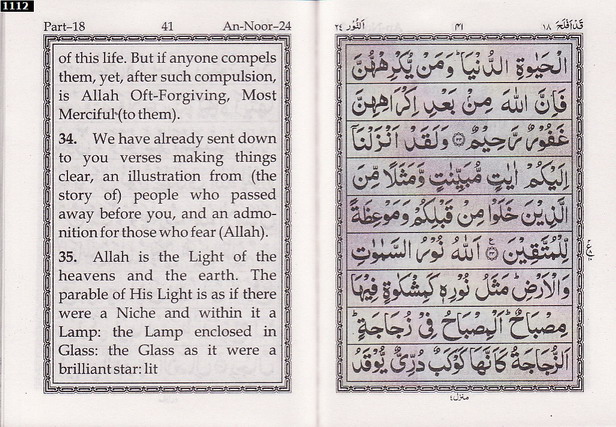 1112
Part–18 41 An-Noor–24
of this life. But if anyone compels
them, yet, after such compulsion,
is Allah Oft-Forgiving, Most
Merciful (to them).
34. We have already sent down
to you verses making things
clear, an illustration from (the
story of) people who passed
away before you, and an admo-
nition for those who fear (Allah).
35. Allah is the Light of the
heavens and the earth. The
parable of His Light is as if there
were a Niche and within it a
Lamp: the Lamp enclosed in
Glass: the Glass as it were a
brilliant star: lit
قَدْ اَفْلَحَ ١٨ ٤١ اَلنُّوْر ٢٤
الْحَيٰوةِ الدُّنْيَا ؕ وَمَنْ يُّكْرِهْهُّنَّ
فَاِنَّ اللّٰهَ مِنْۢ بَعْدِ اِكْرَاهِهِنَّ
غَفُوْرٌ رَّحِيْمٌ ۝٣٣ وَلَقَدْ اَنْزَلْنَاۤ
اِلَيْكُمْ اٰيٰتٍ مُّبَيِّنٰتٍ وَّمَثَلًا مِّنَ
الَّذِيْنَ خَلَوْا مِنْ قَبْلِكُمْ وَمَوْعِظَةً
لِّلْمُتَّقِيْنَ ۝٣٤ اَللّٰهُ نُوْرُ السَّمٰوٰتِ
وَالْاَرْضِ ؕ مَثَلُ نُوْرِهٖ كَمِشْكٰوةٍ فِيْهَا
مِصْبَاحٌ ؕ اَلْمِصْبَاحُ فِيْ زُجَاجَةٍ ؕ
اَلزُّجَاجَةُ كَاَنَّهَا كَوْكَبٌ دُرِّيٌّ يُّوْقَدُ
منزل ٤